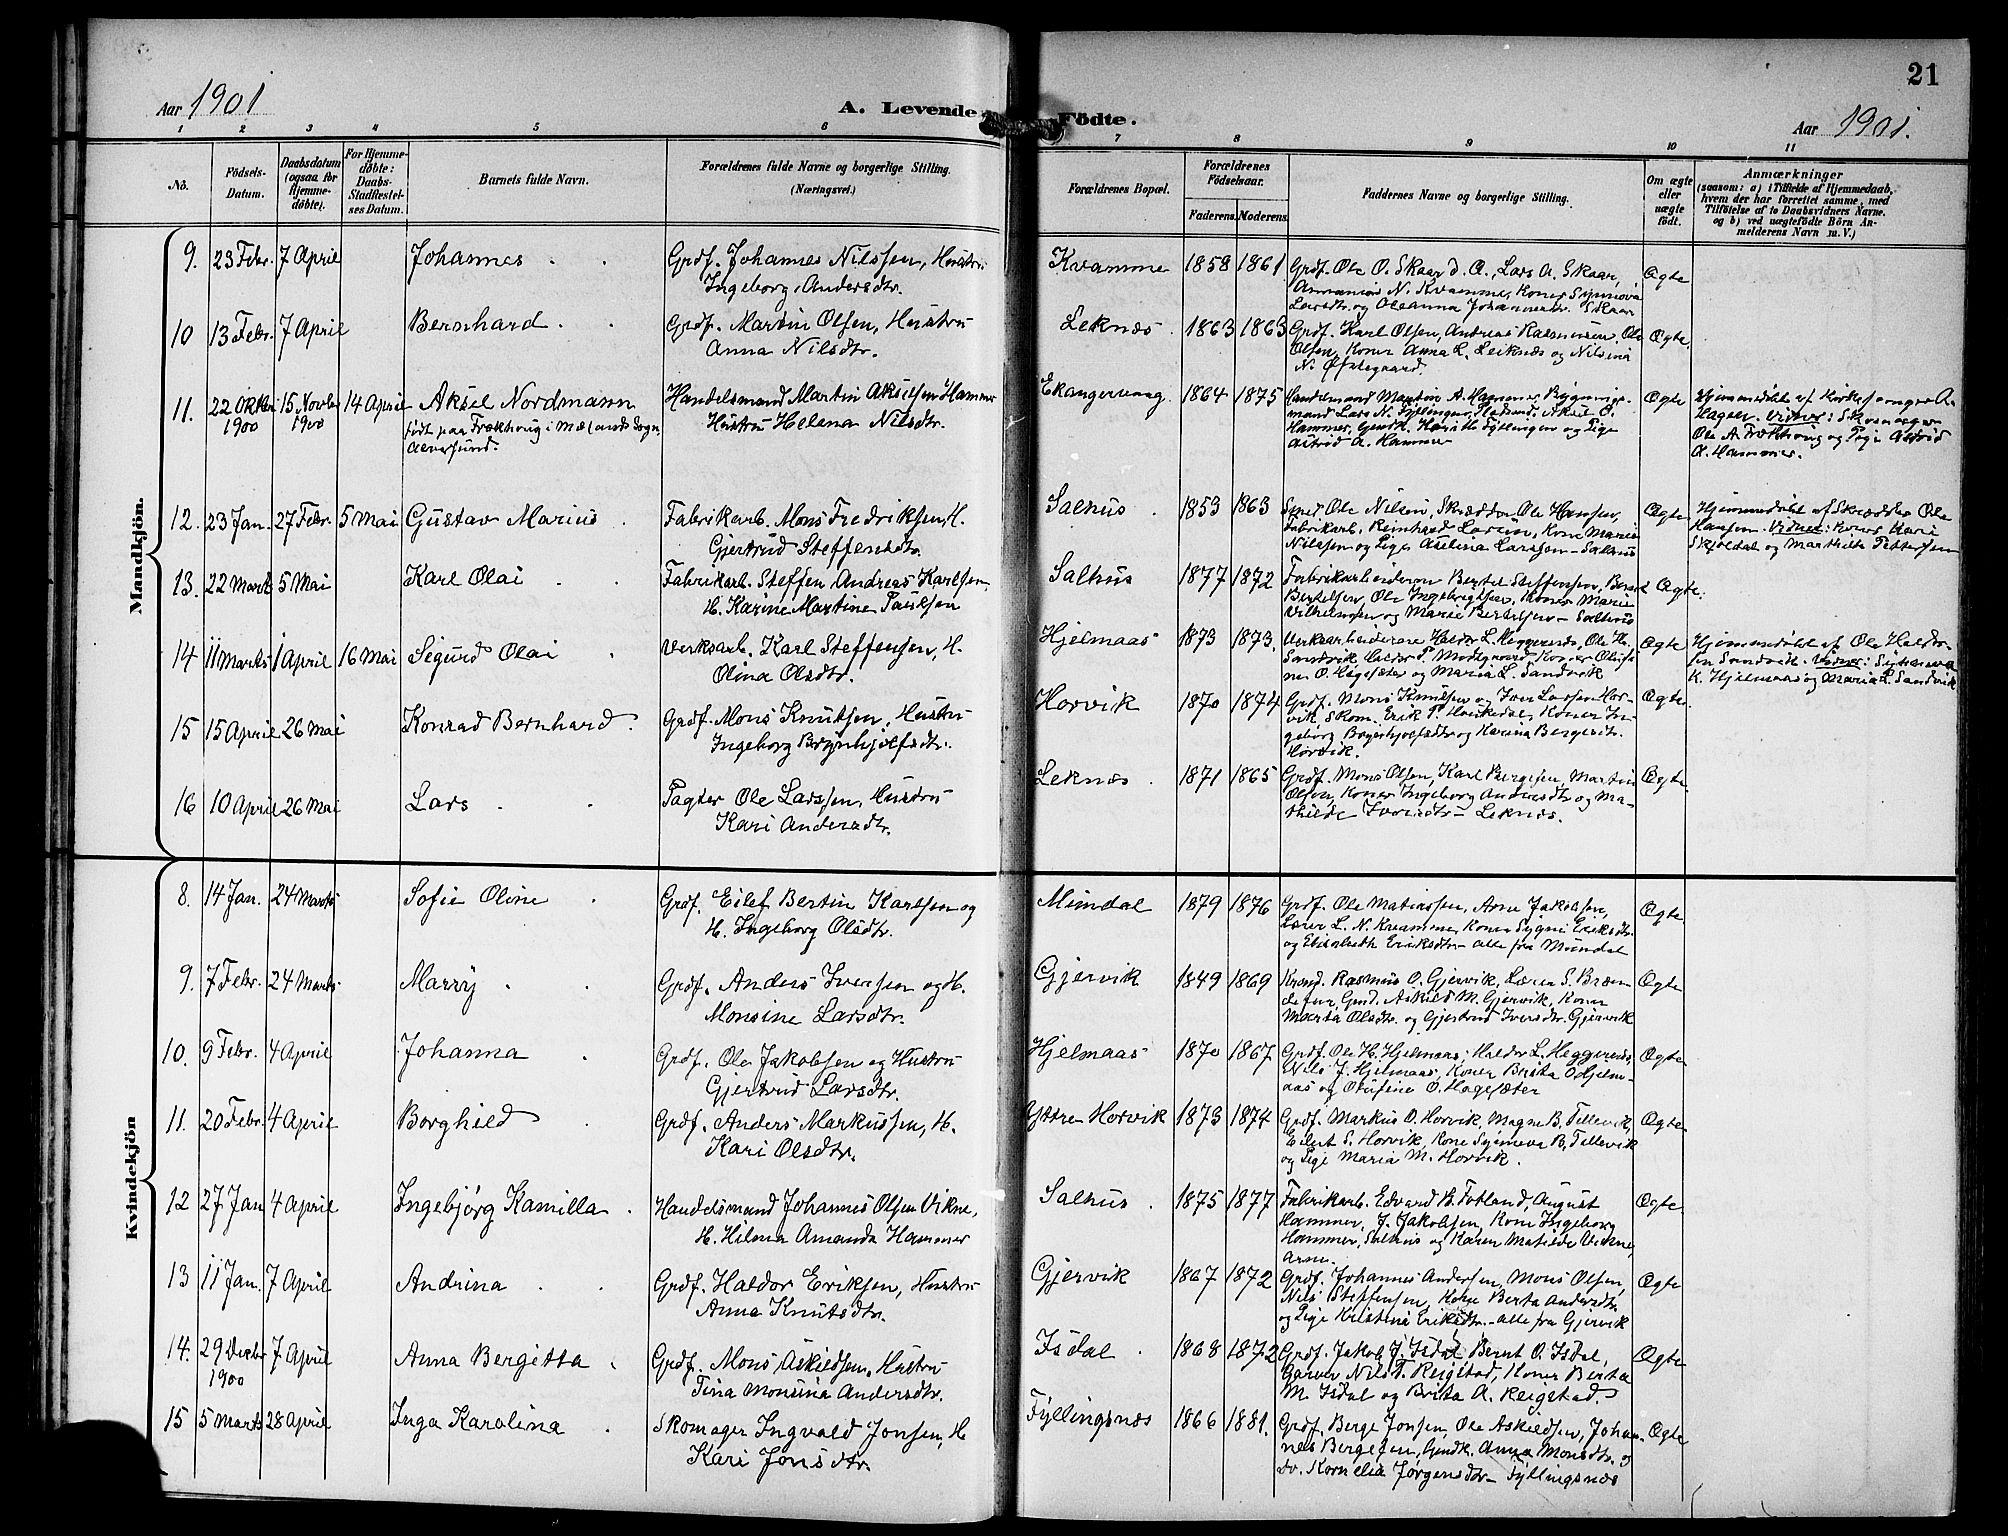 Aar 1901
A. Levende
1 2 3 4 5 6
No.
Födsels-Datum.
Daabsdatum (ogsaa for Hjemmedöbte).
For Hjemmedöbte: Daabs-Stadfæstelses Datum.
Barnets fulde Navn.
Forældrenes fulde Navne og borgerlige Stilling.
(Næringsvei.)
Mandkjön.
9. 23 Febr. 7 April Johannes Grdf. Johannes Nilssen, Hustru
Ingeborg Andersdtr.
10 13 Febr. 7 April Bernhard Grdf. Martin Olsen, Hustru
Anna Nilsdtr.
11. 22 Oktbr 15 Novbr 14 April Aksel Nordmann Handelsmand Martin Akselsen Hammer
1900 1900 født paa i Sogn Hustru Helena Nilsdtr.
Alversund.
12. 23 Jan. 27 Febr. 5 Mai Gustav Marius Fabrikarb. Mons Fredriksen, H.
Gjertrud Steffensdtr.
13. 22 Marts 5 Mai Karl Olai Fabrikarb. Steffen Andreas Karlsen,
H. Karine Martine Paulsen
14 11 Marts 1 April 16 Mai Sigurd Olai Verksarb. Karl Steffensen, H.
Olina Olsdtr.
15 15 April 26 Mai Konrad Bernhard Grdf. Mons Knutsen, Hustru
Ingeborg Brynhjolfsdtr.
16 10 April 26 Mai Lars Pagter Ole Larssen, Hustru
Kari Andersdtr.
Kvindekjön
8. 14 Jan. 24 Marts Sofie Oline Grdf. Eilef Bertin Karlsen og
H. Ingeborg Olsdtr.
9. 7 Febr. 24 Marts Marry Grdf. Anders Iversen og H.
Monsine Larsdtr.
10. 9 Febr. 4 April Johanna Grdf. Ole Jakobsen og Hustru
Gjertrud Larsdtr.
11. 20 Febr. 4 April Borghild Grdf. Anders Markussen, H.
Kari Olsdtr.
12 27 Jan 4 April Ingebjørg Kamilla Handelsmand Johannes Olsen Vikne,
H. Hilma Amanda Hammer
13 11 Jan. 7 April Andrina Grdf. Haldor Eriksen, Hustru
Anna Knutsdtr.
14. 29 Decbr 7 April Anna Bergitta Grdf. Mons Askildsen, Hustru
1900 Tina Monsina Andersdtr.
15 5 Marts 28 April Inga Karolina Skomager Ingvald Jonsen, H
Kari Jonsdtr.
21
Födte.
Aar 1901.
7 8 9 10 11
Forældrenes Bopæl.
Forældrenes Födselsaar.
Faderens. Moderens.
Faddernes Navne og borgerlige Stilling.
Om ægte eller uægte födt.
Anmærkninger
(saasom: a) i Tilfælde af Hjemmedaab,
hvem der har forrettet samme, med
Tilföielse af to Daabsvidners Navne.
og b) ved uægtefödte Börn An-
melderens Navn m. V.)
Kvamme 1858 1861 Grdf. Ole O. Skaar d. A., Lars A. Skaar, Ægte
N. Kvamme, Koner Synnøva
Larsdtr. og Oleanna Johannesdtr. Skaar
Leknæs 1863 1863 Grdf. Karl Olsen, Andreas Rasmussen, Ole Ægte.
Olsen, Koner Anna L. Leiknæs og Nilsina
N. Øfstegaard.
Ekangervaag 1864 1875 Handelsmand Martin A. Hammer, Ægte Hjemmedøbt af
mand Lars N. Fyllingen, Aksel O. Hagen. Vidner:
Hammer, og Pige Ole A. og Pige Astrid
Astrid A. Hammer A. Hammer.
Salhus 1853 1863 Smed Ole Nilsen, Skrædder Ole Hansen, Ægte Hjemmedøbt af Skrædder Ole
Fabrikarb. Reinhard Larsen, Kone Marie Hansen. Vidner: Koner Mari
Nilssen og Pige Larssen – Salhus Skjeldal og Marthite Pettersen
Salhus 1877 1872 Fabrikarbeiderne Bertel Steffensen, Ægte.
Bertelsen, Ole Ingebrigtsen, Koner Marie
Vilhelmsen og Marie Bertelsen – Salhus
Hjelmaas 1873 1873. Verksarbeiderne Haldor L. Heggernæs, Ole H. Ægte Hjemmedøbt af Ole Haldor-
Sandvik, Haldor P. Koner Olufi- sen Sandvik. Vidner:
ne O. Høgesæter og Maria L. Sandvik K. Hjelmaas og Maria L. Sandvik
Horvik 1870 1874 Grdf. Mons Knutsen og Iver Larsen Hor- Ægte.
vik, Skom. Erik P. Koner In-
geborg og Karina Bergesdtr.
Horvik.
Leknæs 1871 1865 Grdf. Mons Olsen, Karl Bergesen, Martin Ægte.
Olsen, Koner Ingeborg Andersdtr og Ma-
thilde Iversdtr – Leknæs.
Mundal 1879 1876 Grdf. Ole Matiassen, Arne Jakobsen, Ægte
Lærer L. N. Kvamme, Koner Sygni Eriksdtr.
og Elisabeth Eriksdtr – alle fra Mundal
Gjervik 1849 1869 Rasmus O. Gjervik, Lærer S. Bræn- Ægte
de Askild M. Gjervik, Koner
Marta Olsdtr. og Gjertrud Iversdtr. Gjervik
Hjelmaas 1870 1867 Grdf. Ole H. Hjelmaas, Haldor L. Heggernæs, Ægte
Nils J. Hjelmaas, Koner Brita O Hjelm-
aas og Olufine O. Høgesæter
Yttre Horvik 1873 1874 Grdf. Markus O. Horvik, Magne B. Tellevik, Ægte
Eilert S. Horvik, Kone Synneva B. Tellevik
og Pige Maria M. Horvik.
Salhus 1875 1877 Fabrikarb. Edvard B. Fotland, August Ægte.
Hammer, J. Jakobsen, Kone Ingeborg
Hammer, Salhus og Karen Matilde Vikne,
Arne.
Gjervik 1867 1872 Grdf. Johannes Andersen, Mons Olsen, Ægte
Nils Steffensen, Kone Berta Andersdtr.
og Pige Kristina Eriksdtr. – alle fra Gjervik
Isdal 1868 1872 Grdf. Jakob J. Isdal Bernt O. Isdal, Ægte
Garver Nils T. Reigstad, Koner Berta
M. Isdal og Brita A. Reigstad
Fyllingsnæs 1866 1881. Grdf. Berge Jonsen, Ole Askildsen, Johan- Ægte
nes Bergesen, Anna Monsdtr. og
Kornelia Jørgensdtr – Fyllingsnæs